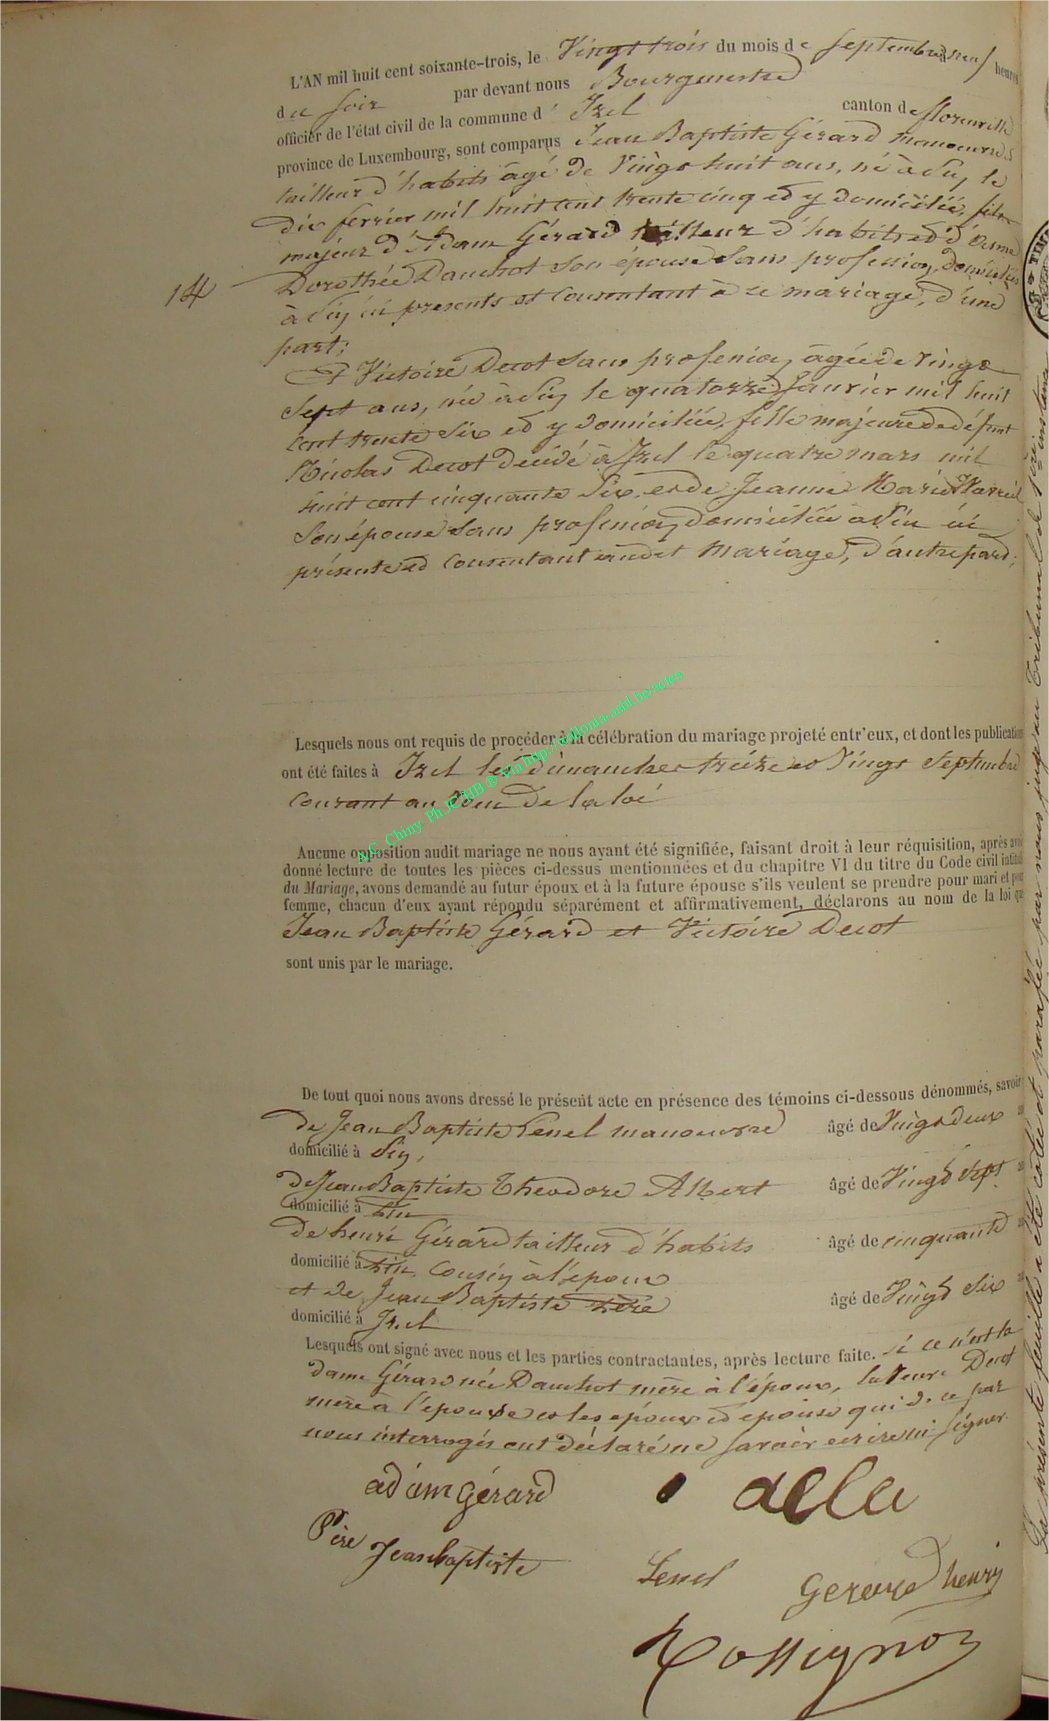 L'AN mil huit cent soixante-trois, le Vingt trois du mois de septembre neuf heures
du soir par devant nous Bourgmestre
officier de l'état civil de la commune d' Izel canton de florenville
province de Luxembourg, sont comparus Jean Baptiste Gérard manoeuvre
tailleur d'habits âgé de Vingt huit ans, né à Pin le
dix fevrier mil huit cent trente cinq et y domicilié, fils
majeur d'Adam Gérard tailleur d'habits et d'Anne
Dorothée Dauchot son épouse sans profession, domiciliés
à Pin ici presents et consentant à ce mariage, d'une
14
part;
Et Victoire Decot sans profession âgée de Vingt
Sept ans, née à Pin le quatorze Janvier mil huit
cent trente Six et y domiciliée, fille majeure de défunt
Nicolas Decot décédé à Izel le quatre mars mil
huit cent cinquante Six, et de Jeanne Marie
Son épouse Sans profession domiciliée à Pin ici
présente et consentant audit mariage, d'autre part;
Lesquels nous ont requis de procéder à la célébration du mariage projeté entr'eux, et dont les publications
ont été faites à Izel les dimanches treize et Vingt Septembre
courant au Vœu de la loi
A.C. Chiny Ph.JCRIB ® via http://wallonia-asbl.be/actes
Aucune opposition audit mariage ne nous ayant été signifiée, faisant droit à leur réquisition, après avoir
donné lecture de toutes les pièces ci-dessus mentionnées et du chapitre VI du titre du Code civil intitulé
du Mariage, avons demandé au futur époux et à la future épouse s'ils veulent se prendre pour mari et pour
femme, chacun d'eux ayant répondu séparément et affirmativement, déclarons au nom de la loi que
Jean Baptiste Gérard et Victoire Decot
sont unis par le mariage.
De tout quoi nous avons dressé le présent acte en présence des témoins ci-dessous dénommés, savoir
de Jean Baptiste Lenel manoeuvre âgé de Vingt deux
domicilié à Pin,
de Jean Baptiste Theodore Albert âgé de Vingt Sept
domicilié à Pin
de henri Gérard tailleur d'habits âgé de cinquante
domicilié à Pin, Cousin à l'époux
et de Jean Baptiste Père âgé de Vingt Six
domicilié à Izel
Lesquels ont signé avec nous et les parties contractantes, après lecture faite. Si ce n'est la
dame Gérard née Dauchot mère à l'époux, la Veuve Decot
mère à l'epouse et les époux et epouse qui de ce par
nous interrogés ont déclaré ne savoir ecrire ni signer
adam gérard
Père Jean baptiste
Lenel gerard henry
Rossignon
La présente feuille a été cotée et parafée par nous juge au Tribunal de 1re instance